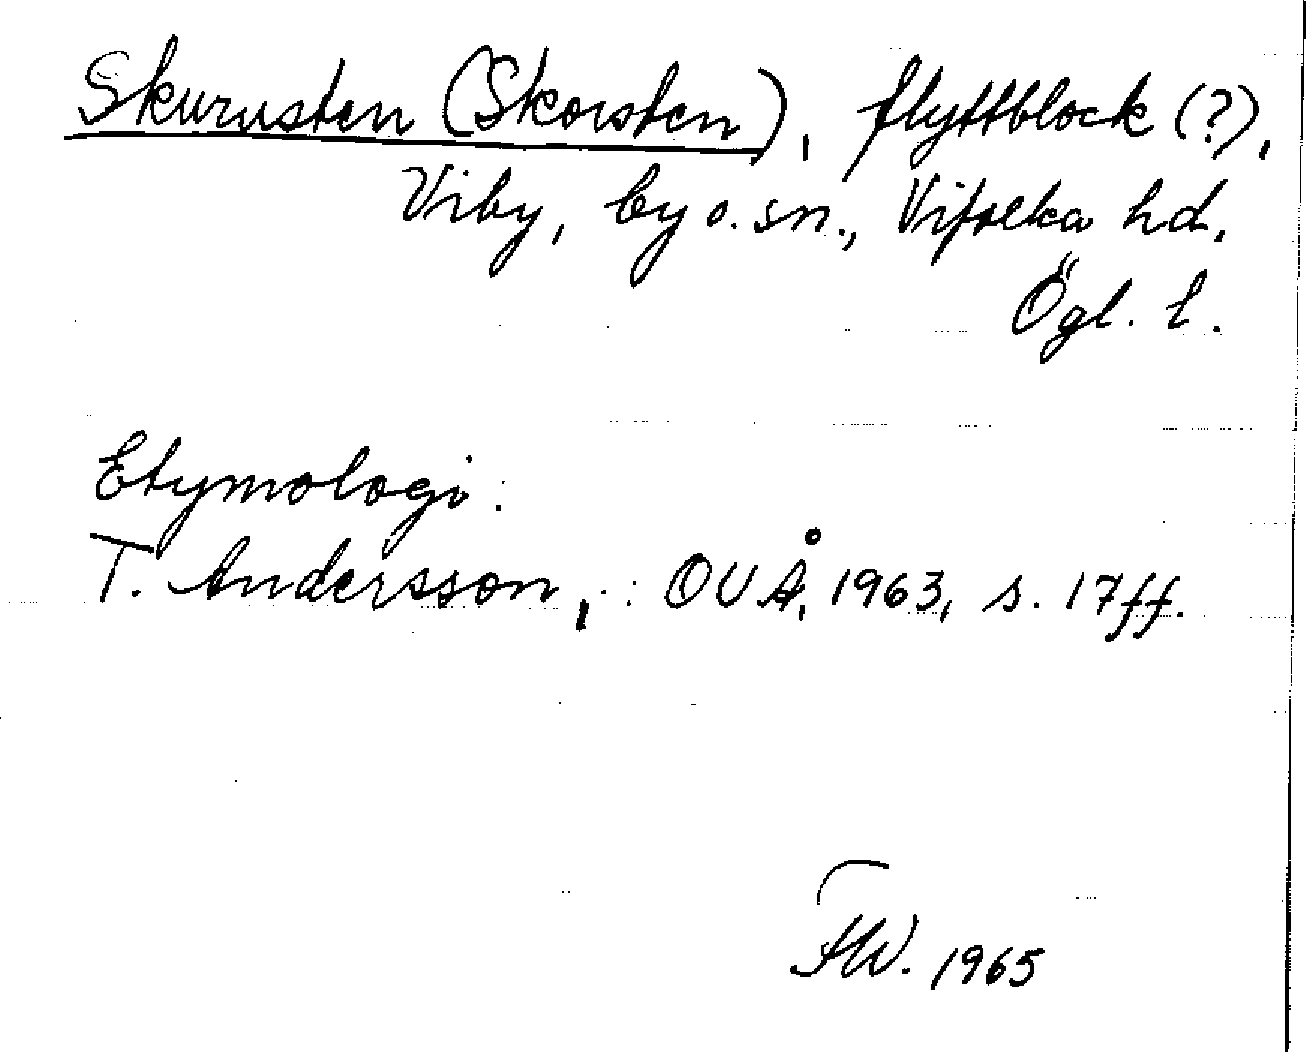 Skurusten (Skorsten), flyttblock (?),
Viby, by o. sn., Vifolka hd,
Ögl. l.
Etymologi:
T. Andersson, : OUÅ, 1963, s. 17ff.
FW. 1965